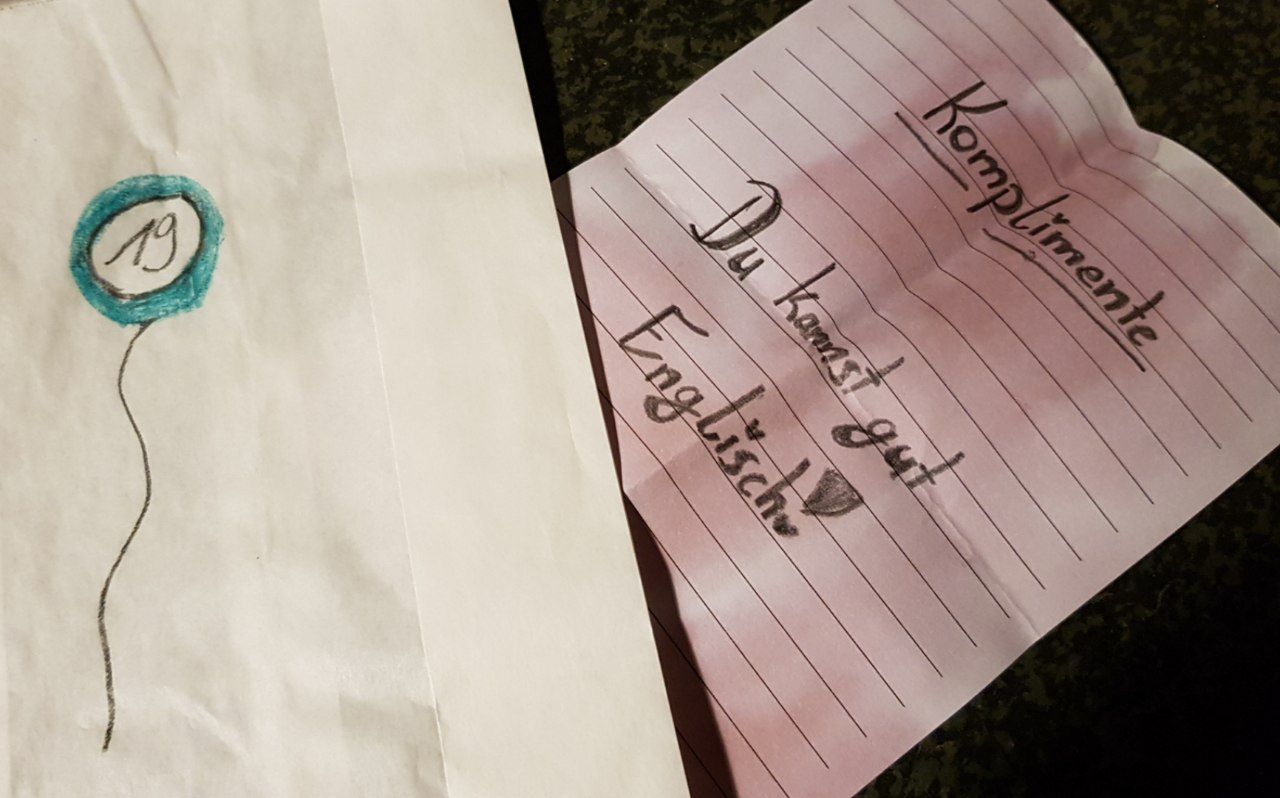 19
Komplimente
Du kannst gut
Englisch